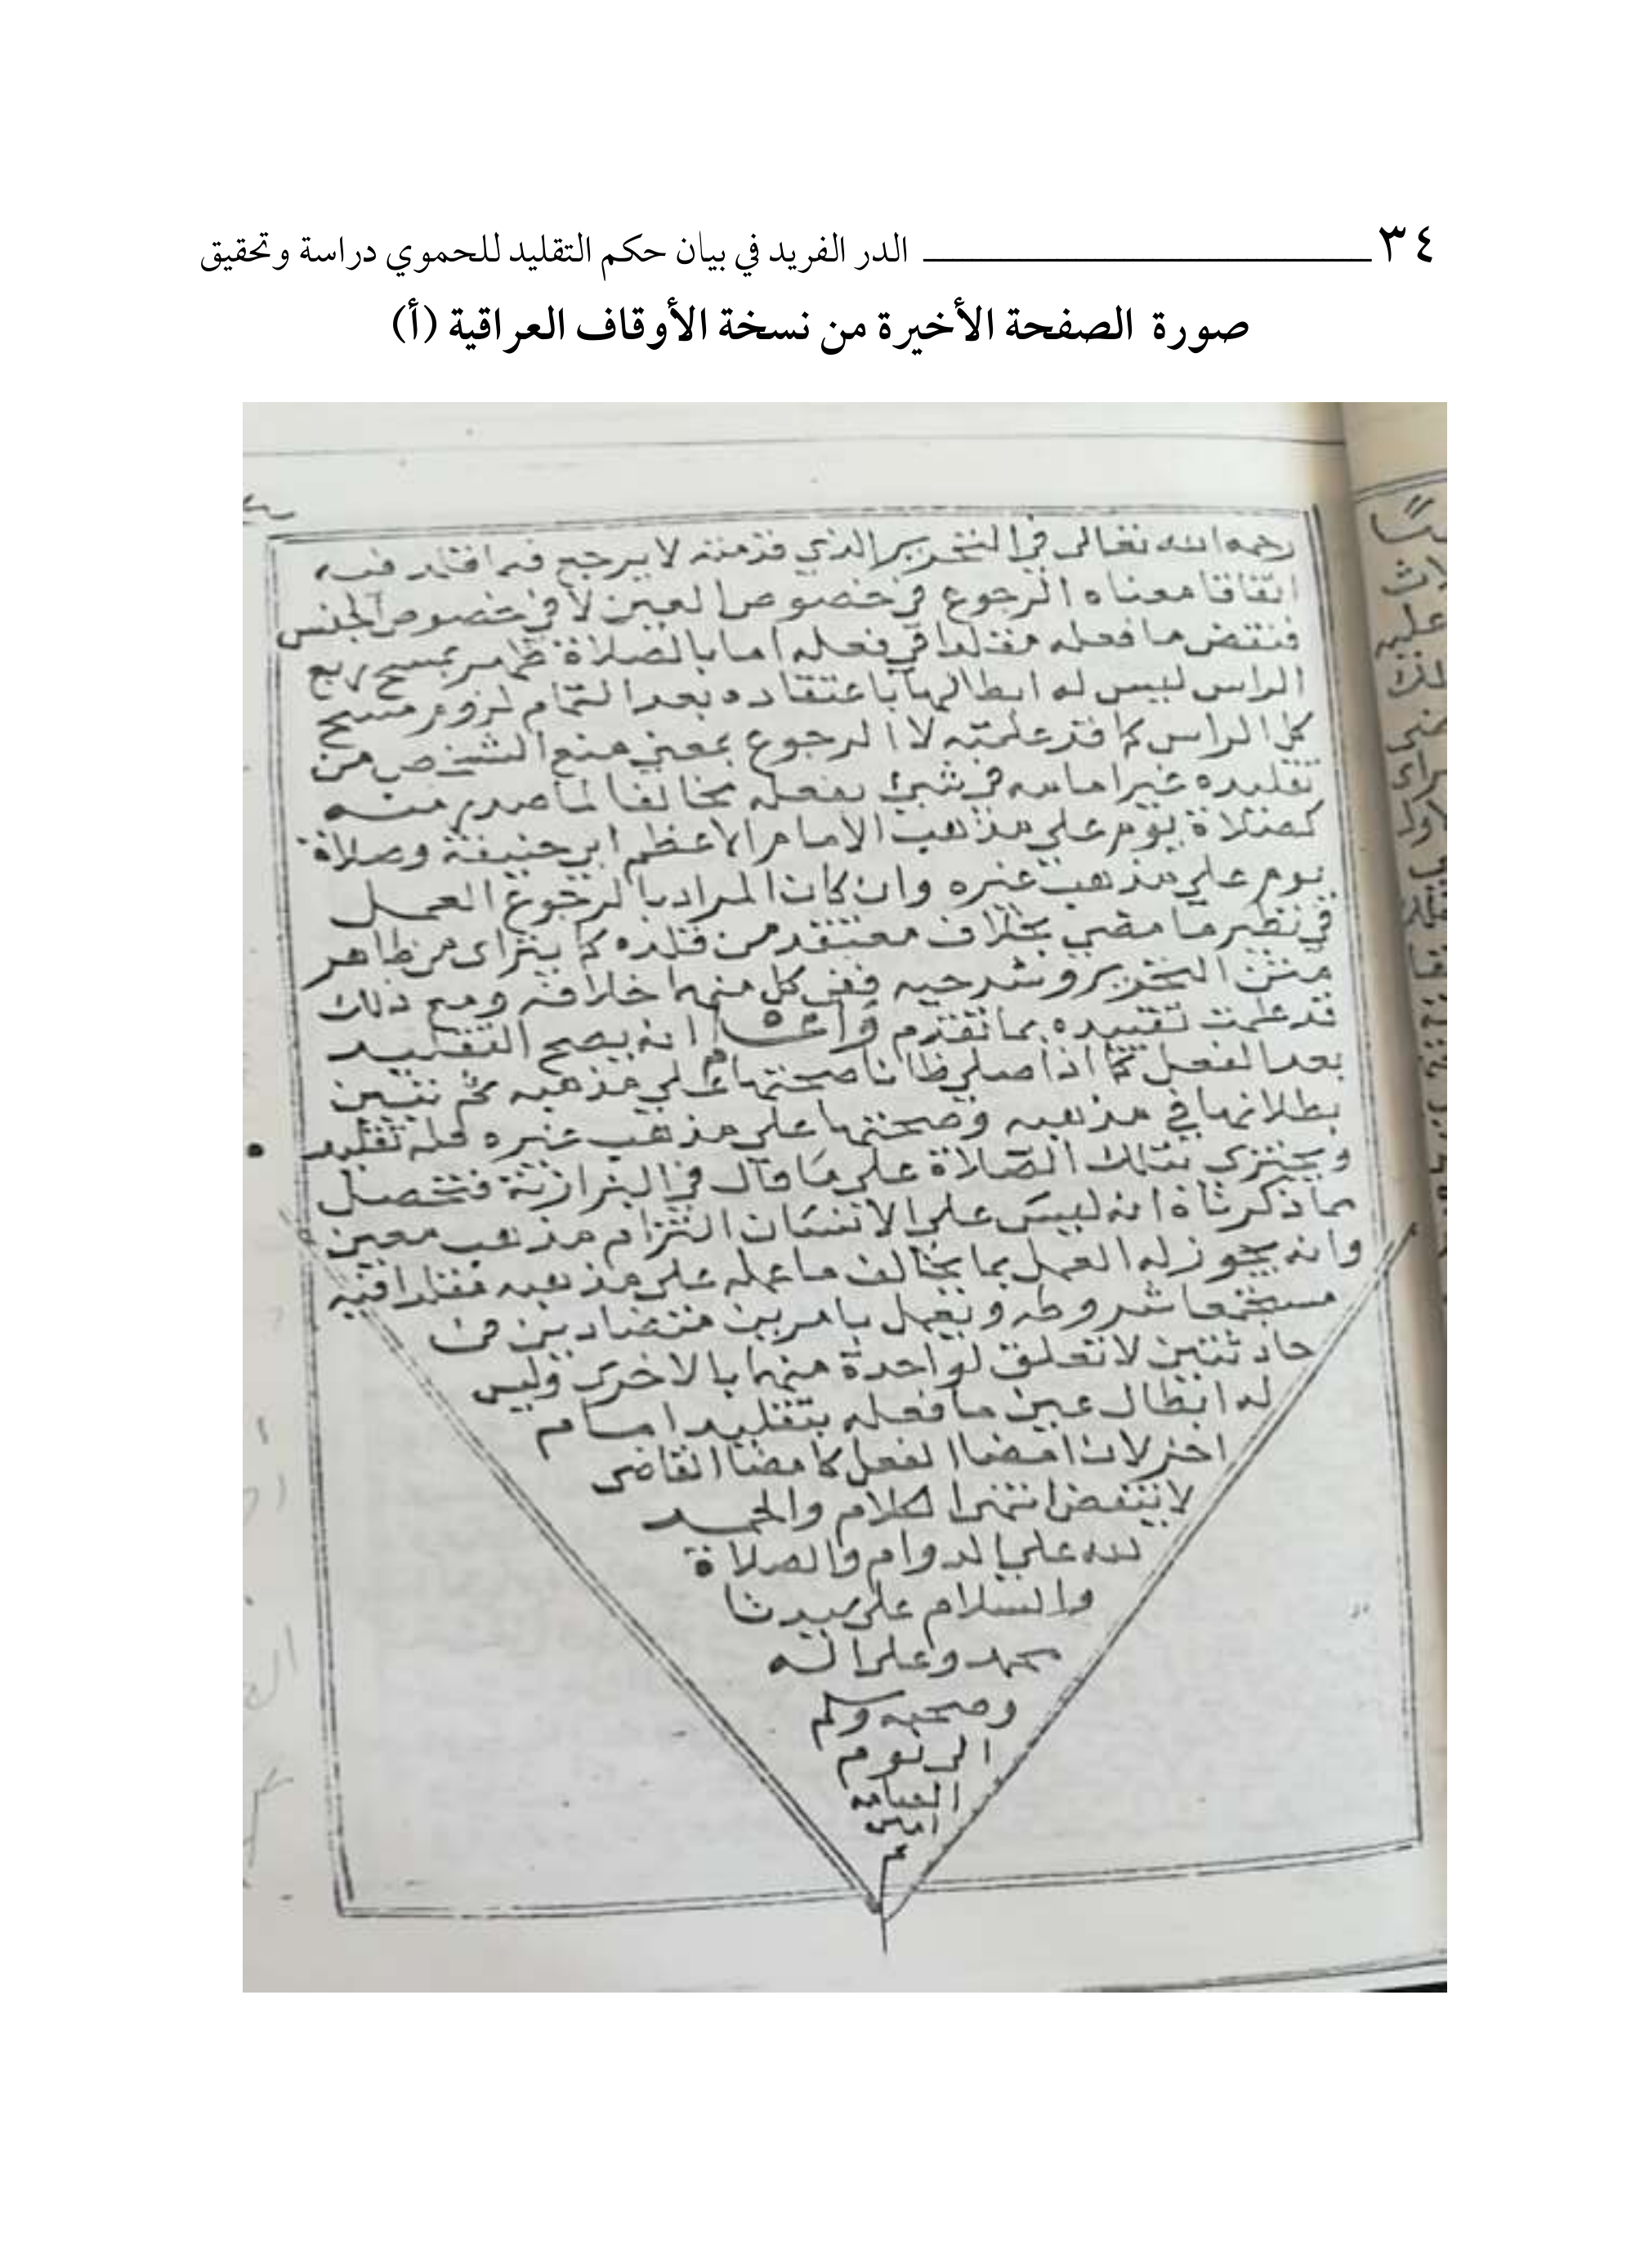 ٣٤ الدر الفريد في بيان حكم التقليد للحموي دراسة وتحقيق
صورة الصفحة الأخيرة من نسخة الأوقاف العراقية (أ)
رحمه الله تعالى في التحرير الذي قدمته لا يرجع فيما قلد فيه
اتفاقا معناه الرجوع في خصوص العين لا في خصوص الجنس
فنقض ما فعله مقلدا في فعله اماما بالصلاة ظهر بمسح ربع
الراس ليس له ابطالها باعتقاده بعد التمام لزوم مسح
كل الراس كما قد علمته لا الرجوع بمعني منع الشخص من
تقليده غير امامه في شيئ يفعله مخالفا لما صدر منه
كصلاة يوم علي مذهب الامام الاعظم ابي حنيفة وصلاة
يوم علي مذهب غيره وان كان المراد بالرجوع العمل
في نظير ما مضي بخلاف معتقد من قلده كما يتراى من ظاهر
متن التحرير وشرحيه ففي كل منهما خلافه ومع ذلك
قد علمت تقييده بما تقدم واعلم انه يصح التقليد
بعد الفعل كما اذا صلي ظانا صحتها علي مذهبه ثم تبين
بطلانها في مذهبه وصحتها علي مذهب غيره فله تقليده
ويجتزي بتلك الصلاة علي ما قال في البزازية فتحصل
مما ذكرناه انه ليس علي الانسان التزام مذهب معين
وانه يجوز له العمل بما يخالف ما عمله علي مذهبه مقلدا فيه
مستجمعا شروطه ويعمل بامرين متضادين في
حادثتين لا تعلق لواحدة منهما بالاخرى وليس
له ابطال عين ما فعله بتقليد امام
اخر لان امضا الفعل كامضا القاضي
لا ينتقض انتهى الكلام والحمد
لله علي الدوام والصلاة
والسلام على سيدنا
محمد وعلى اله
وصحبه وسلم
الى يوم
القيامة
امين
م